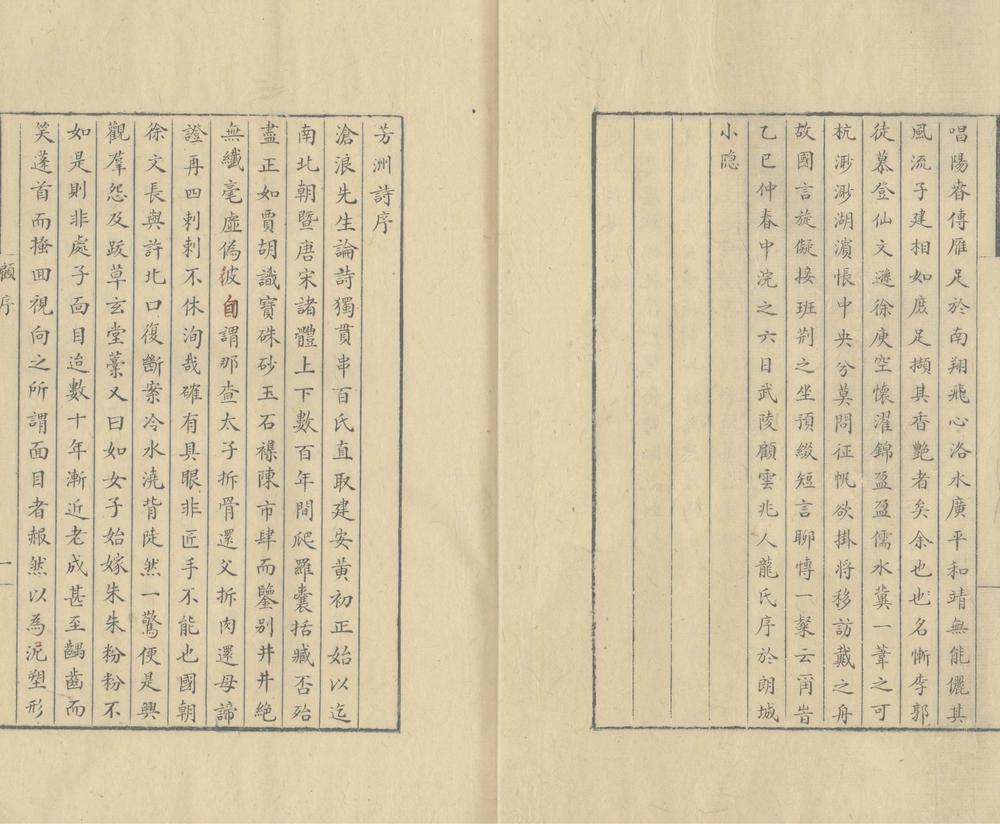 唱陽春傳雁足於南翔飛心洛水廣平和靖無能儷其
風流子建相如庶足擷其香艷者矣余也也名慚李郭
徒慕登仙文遜徐庾空懷濯錦盈盈儒水冀一葦之可
杭渺渺湖濵悵中央兮莫問征帆欲掛将移訪戴之舟
故國言旋儗接班荆之坐預綴短言聊愽一粲云爾旹
乙巳仲春中浣之六日武陵顧雲兆人龍氏序於朗城
小隐
芳洲詩序
滄浪先生論詩獨貫串百氏直取建安黄初正始以迄
南北朝暨唐宋諸體上下數百年間爬羅囊括臧否殆
盡正如賈胡識寶硃砂玉石襍陳市肆而鑒别井井絶
無纖毫虚偽彼自謂那查太子折骨還父拆肉還母諦
證再四剌剌不休洵哉確有具眼非匠手不能也國朝
徐文長與許北口復斷案冷水澆背陡然一驚便是興
觀羣怨及跃草玄堂藁又曰如女子始嫁朱朱粉粉不
如是則非處子面目迨數十年漸近老成甚至齲齒而
笑蓬首而搔回視向之所謂面目者赧然以為泥塑形
顧序
一